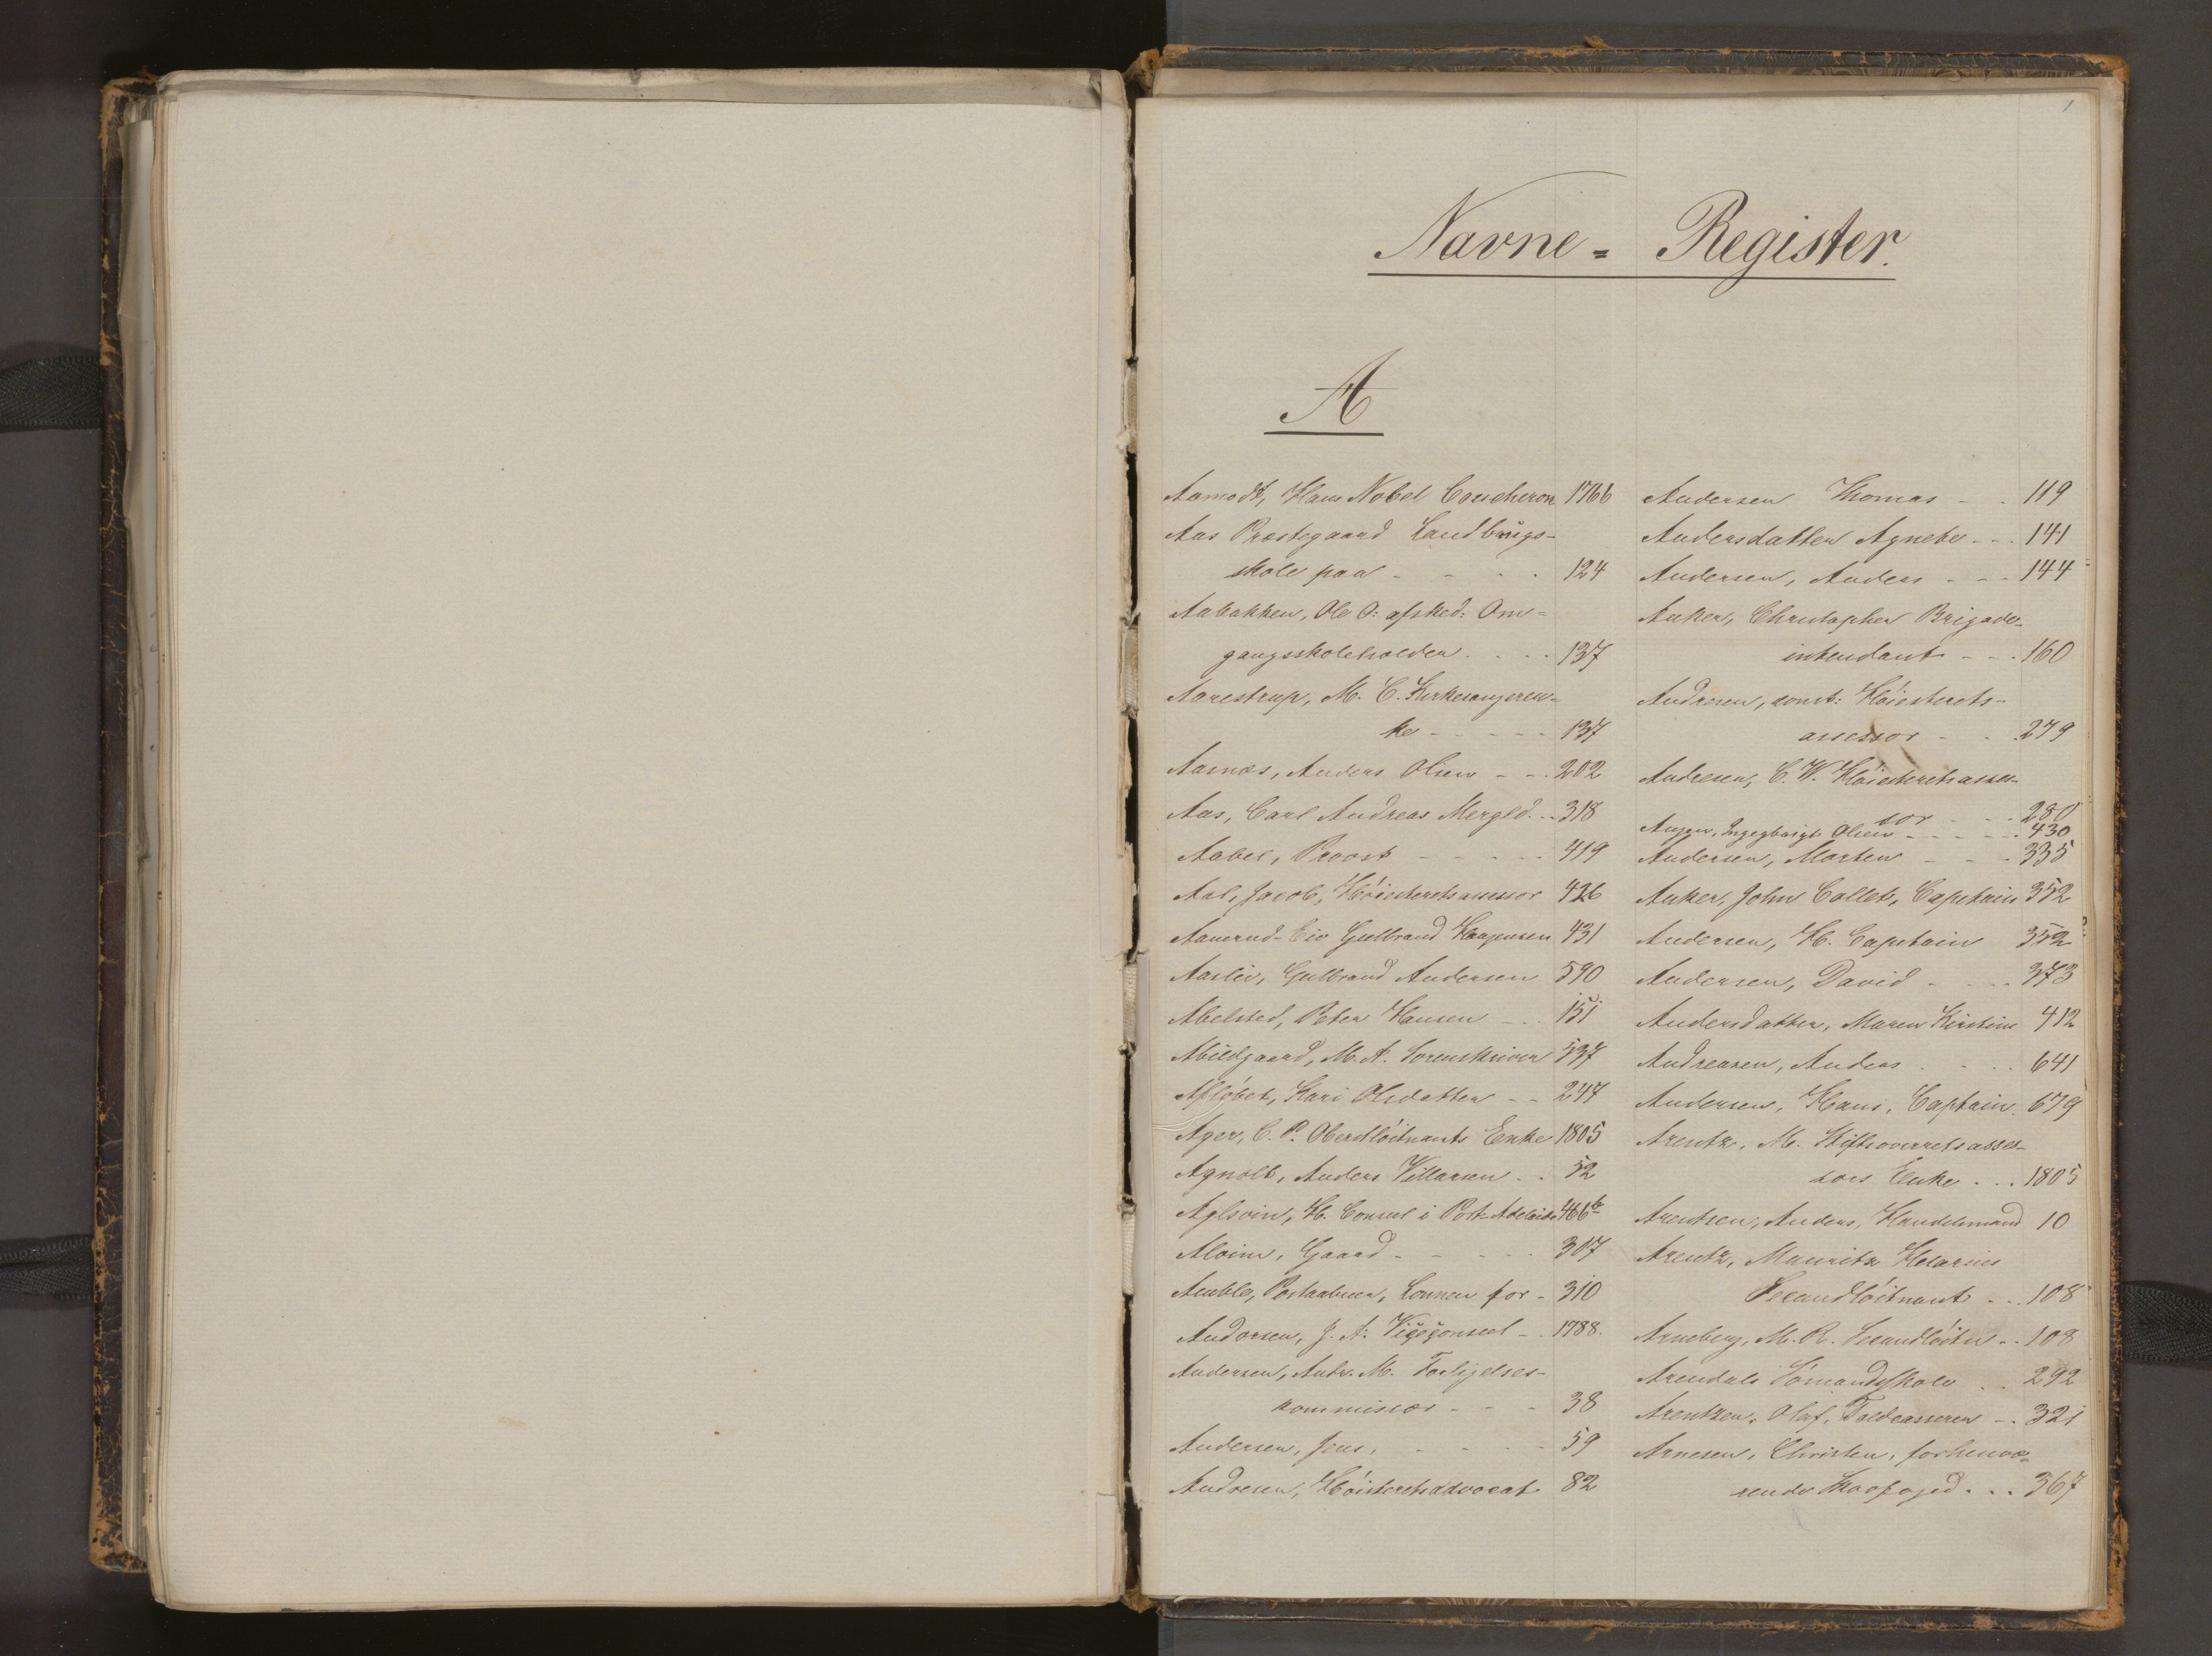 1
Navne = Register.
A
Aamodt, Hans Nobel Coucheron 1766
Aas Præstegaard Landbrugs-
skole paa - - - - 124
Aabakken, Ole O: afsked: Om=
gangsskoleholder - - - - 137
Aarestrup, M. C. Kirkesangeren=
ke - - - - - 137
Aasnæs, Anders Olsen - - - 202
Aas, Carl Andreas Mergld. - - 318
Aabel, Provst - - - - - 419
Aal, Jacob, Høiesteretsassessor 426
Aamerud-Eie Gulbrand Haagensen 431
Aaslie, Gulbrand Andersen 590
Abelsted, Peter Hansen - - - 151
Abildgaard, M. A. Sorenskriver 537
Afløbet, Kari Olsdatter - - 247
Ager, C. P. Oberstlöitnants Enke 1805
Agnolt, Anders Villarsen - - 52
Consul i Port Adelaide 466b
Gaard - - - - - 307
Postaabner, Lønnen for - 310
Andorsen, J. A: Viceconsul - - 1788.
Andersen, Andr. M. Forligelses-
kommissær - - - 38
Andersen, Jens, - - - - - 59
Andresen, Høiesteretsadvocat 82
Andersen Thomas - - 119
Andersdatter Agnete - - - 141
Andersen, Anders - - - 144
Anker, Christopher Brigade-
intendant - - - 160
Andresen, const: Høiesterets-
assessor - - - 279
Andresen, C. W. Høiesteretsasses-
sor - - - 280
Ingegbrigt Olsen - - - - - 430
Andersen, Morten - - - 335
Anker, John Collet, Capitain 352
Andersen, H. Capitain 352
Andersen, David - - - - 373
Andersdatter, Maren Kirstine 412
Andreasen, Anders - - - - 641
Andersen, Hans, Captain. 679
Arentz, M. Stiftsoverretsasses-
sors Enke - - - 1805
Arentsen, Anders, Handelsmand 10
Arentz, Mauritz Helarius
Secondlöitnant - - - 108
Arneberg, M. R. Secondlöitn - - 108
Arendals Sömandsskole - - 292
Arentzen, Olaf, Toldcasserer - - 321
Arnesen, Christen, forhenvæ-
rende Skovfoged - - - 367